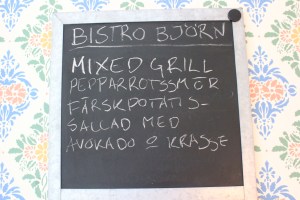 BISTRO BJÖRN
MIXED GRILL
PEPPARROTSSMÖR
FÄRSKPOTATIS-
SALLAD MED
AVOKADO O KRASSE